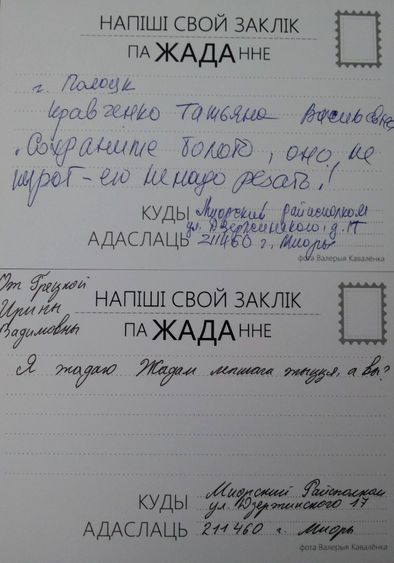 НАПІШІ СВОЙ ЗАКЛІК
ПА ЖАДА ННЕ
г. Полоцк
Кравченко Татьяна Васильевна
"Сохраните болото, оно не
торт - его не надо резать!
КУДЫ Миорский райисполком
ул. Дзержинского, д. 17
АДАСЛАЦЬ 211460 г. Миоры
фота Валерыя Каваленка
От Грецкой
Ирины
Вадимовны
НАПІШІ СВОЙ ЗАКЛІК
ПА ЖАДА ННЕ
Я жадаю Жадам лепшага жыцця, а вы?
КУДЫ Миорский Райсполком
ул. Дзержинского 17
АДАСЛАЦЬ 211460 г. Миоры
фота Валерыя Каваленка